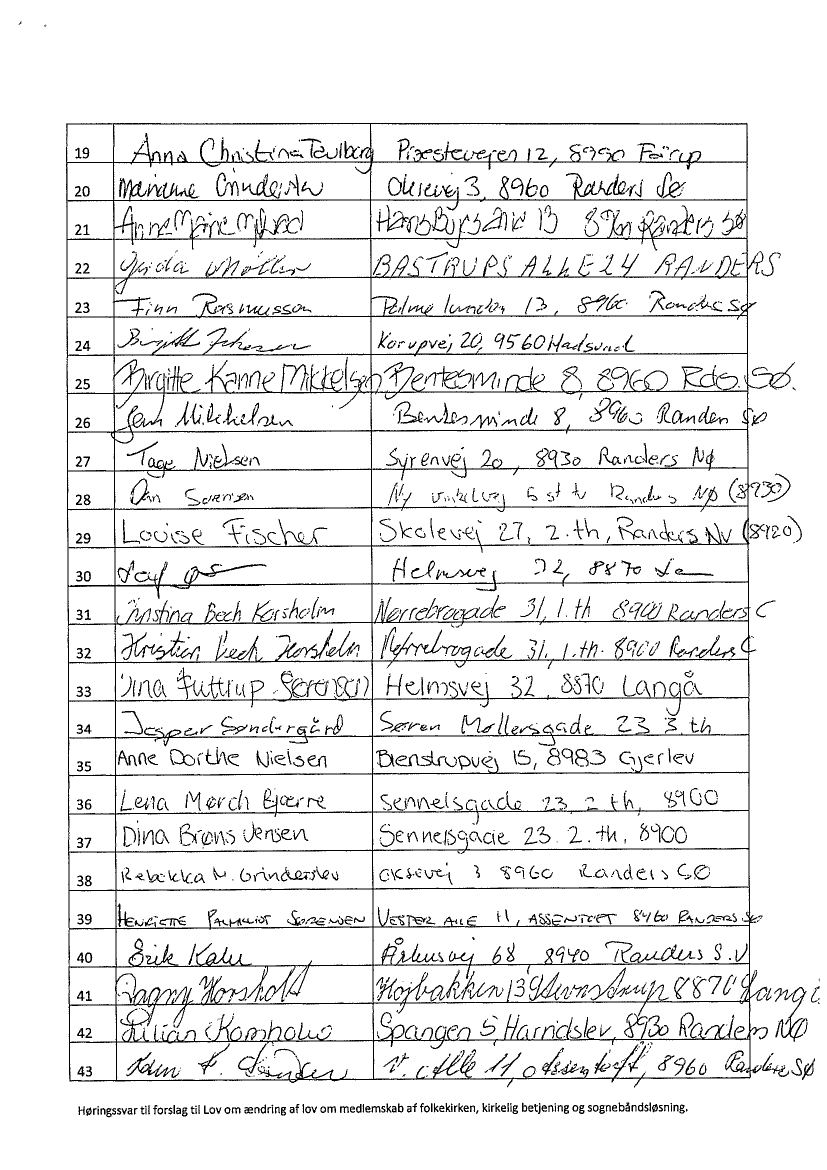 19 Anna Christina Taulborg Præstevejen 12, 8990 Fårup
20 Marianne Oksevej 3, 8960 Randers SØ
21 Anne Marie 13 Randers SØ
22 BASTRUPS ALLE 24 RANDERS
23 Finn Rasmussen Palmelunden 13, 8960 Randers SØ
24 Korupvej 20, 9560 Hadsund
25 Birgitte Kanne Mikkelsen Bentesminde 8, 8960 Rds. SØ.
26 Mikkelsen Bentesminde 8, 8960 Randers SØ
27 Tage Nielsen Syrenvej 20, 8930 Randers NØ
28 Sørensen Ny 5 st tv Randers NØ (8930)
29 Louise Fischer Skolevej 27, 2. th, Randers NV (8920)
30 Helmsvej 32, 8870
31 Christina Bech Korsholm Nørrebrogade 31, 1. th 8900 Randers C
32 Kristian Bech Korsholm Nørrebrogade 31, 1. th. 8900 Randers C
33 Futtrup Sørensen Helmsvej 32, 8870 Langå
34 Jesper Søndergård Søren Møllersgade 23 3 th
35 Anne Dorthe Nielsen Bjenstrupvej 15, 8983 Gjerlev
36 Lena Mørch Bjerre Sennelsgade 23, 2 th, 8900
37 Dina Brøns Jensen Sennelsgade 23. 2. th, 8900
38 Rebekka M. Grinderslev Oksevej 3 8960 Randers SØ
39 HENRIETTE PALMQVIST SØRENSEN VESTER ALLE 11, ASSENTOFT 8960 RANDERS SØ
40 Erik Århusvej 68, 8940 Randers S.V
41 Dagny Korsholt Højbakken 13 8870 Langå
42 Lilian Korsholm Spangen 5, Harridslev, 8930 Randers NØ
43 V. Alle 11, Assentoft, 8960 Randers SØ
Høringssvar til forslag til Lov om ændring af lov om medlemskab af folkekirken, kirkelig betjening og sognebåndsløsning.